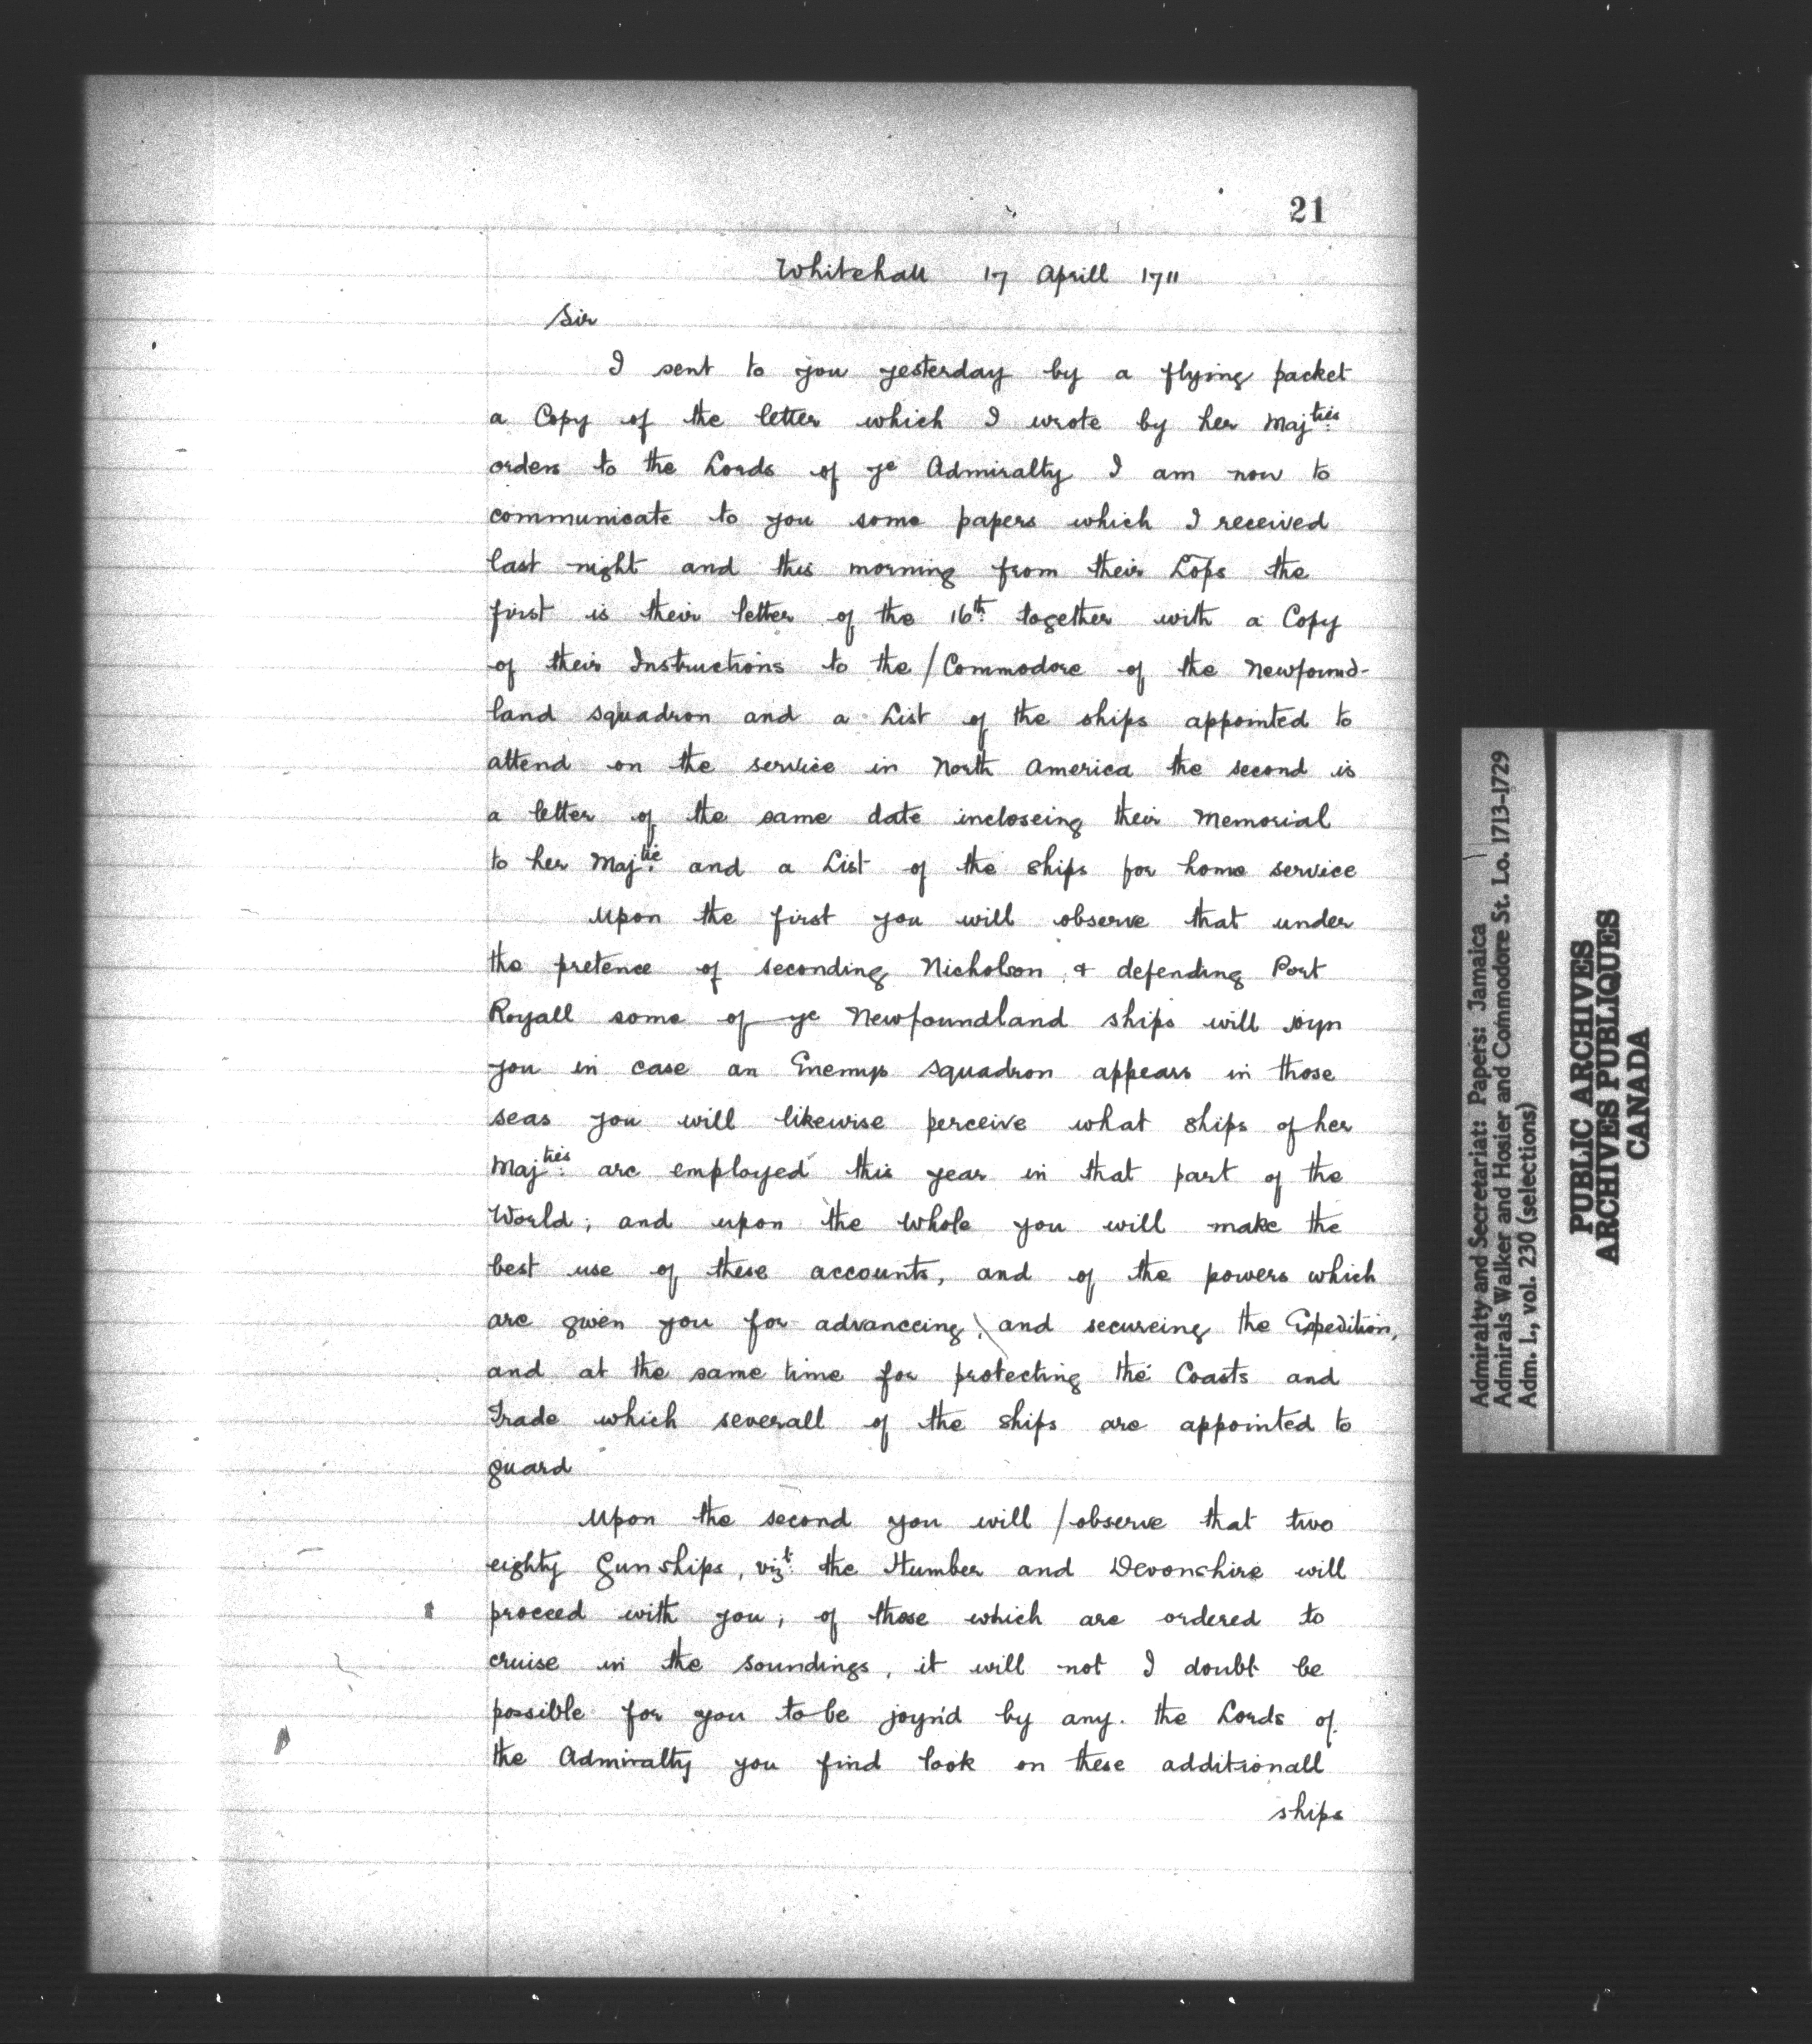 21
Whitehall 17 Aprill 1711
Sir
I sent to you yesterday by a flying packet
a Copy of the letter which I wrote by her Maj:ties
orders to the Lords of ye Admiralty I am now to
communicate to you some papers which I received
last night and this morning from their Lops the
first is their letter of the 16th together with a Copy
of their Instructions to the / Commodore of the Newfound-
land squadron and a List of the ships appointed to
attend on the service in North America the second is
a letter of the same date incloseing their Memorial
to her Maj:tie and a List of the ships for home service
Upon the first you will observe that under
the pretence of seconding Nicholson & defending Port
Royall some of ye Newfoundland ships will joyn
you in case an Enemys squadron appears in those
seas you will likewise perceive what ships of her
Maj:ties are employed this year in that part of the
World; and upon the whole you will make the
best use of these accounts, and of the powers which
are given you for advanceing, \ and secureing the Expedition,
and at the same time for protecting the Coasts and
Trade which severall of the ships are appointed to
guard
Upon the second you will / observe that two
eighty Gun ships, vizt: the Humber and Devonshire will
proceed with you, of those which are ordered to
cruise in the soundings, it will not I doubt be
possible for you to be joyn'd by any. the Lords of
the Admiralty you find look on these additionall
ships
Admiralty and Secretariat: Papers: Jamaica
Admirals Walker and Hosier and Commodore St. Lo. 1713-1729
Adm. 1., vol. 230 (selections)
PUBLIC ARCHIVES
ARCHIVES PUBLIQUES
CANADA